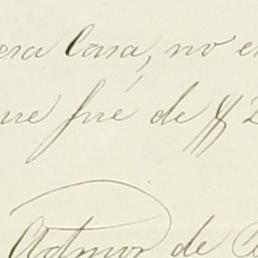 era Casa, no e
ue fué de $ 2
Admor de C